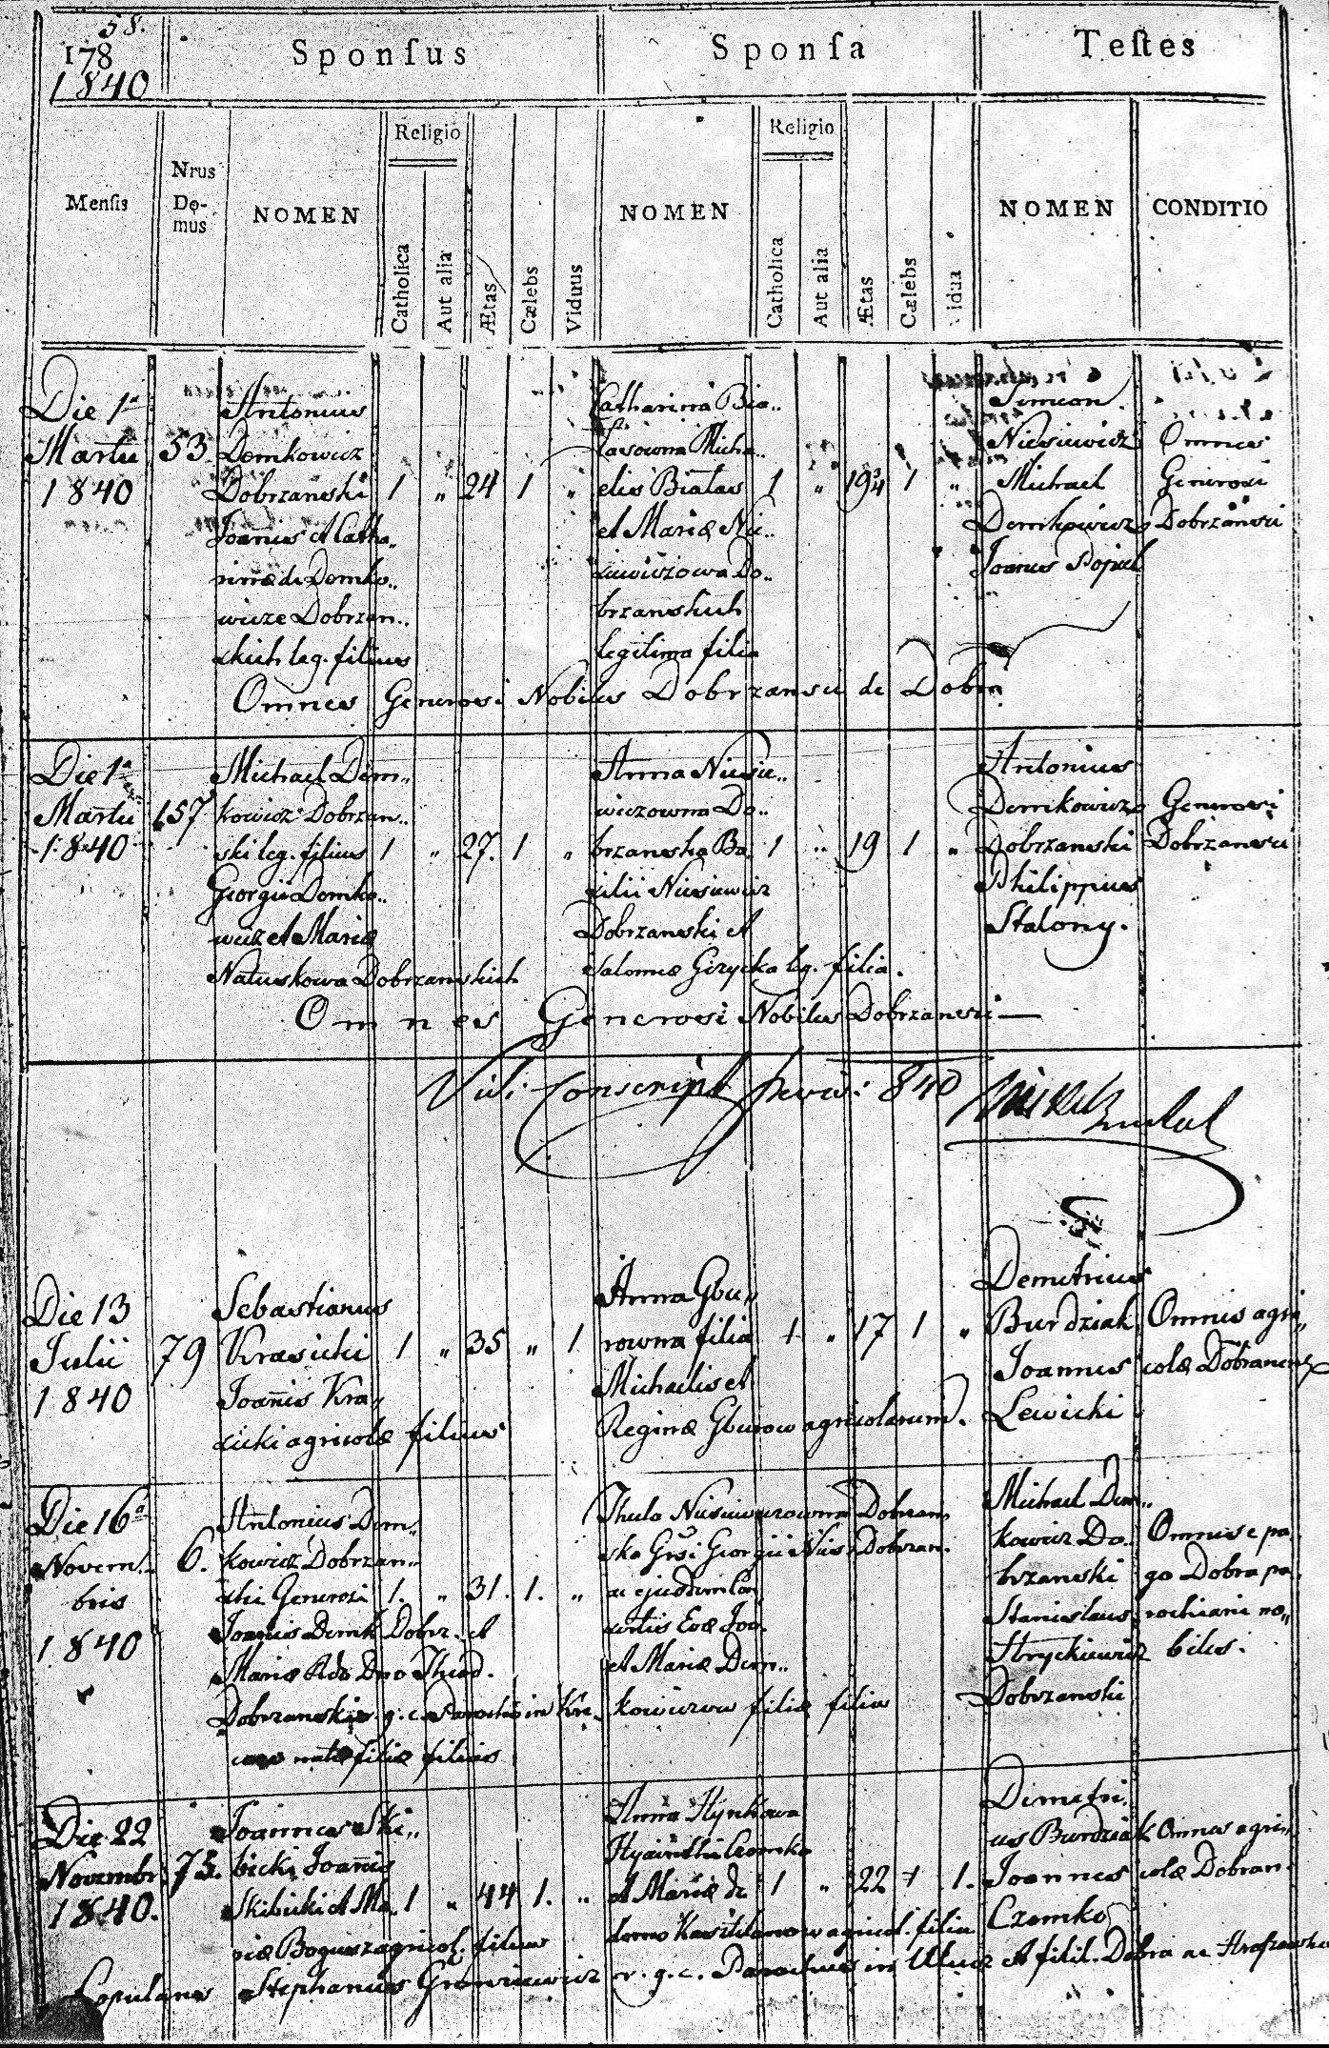 58.
178
1840
Sponſus
Sponſa
Teſtes
Menſis
Nrus Do-mus
NOMEN
Religio
Catholica
Aut alia
Ætas
Cælebs
Viduus
NOMEN
Religio
Catholica
Aut alia
Ætas
Cælebs
idua
NOMEN
CONDITIO
Die 1a
Martii
1840
53
Antonius
Demkowicz
Dobrzanski
Joanis et Catha..
rinæ de Demko..
wicze Dobrzan..
skich leg. filius
1 „ 24 1 „
Catharina Bia..
łasowna Micha..
elis Białas
et Mariæ Nie..
siewiczowa Do..
brzanskich
legitima filia
1 „ 19 3/4 1 „
Simeon
Niesiewicz
Michael
Demkowicz
Joanes Popiel
Omnes
Generosi
Dobrzanski
Omnes Generosi Nobiles Dobrzansci de Dobra
Die 1a
Martii
1840
157
Michael Dem..
kowicz Dobrzan..
ski leg. filius
Georgii Demko..
wicz et Mariæ
Natuskowa Dobrzanskich
1 „ 27. 1 „
Anna Niesie..
wiczowna Do..
brzanska Ba.
silii Niesiewicz
Dobrzanski et
Salomeæ Gizycka leg. filia.
1 „ 19 1 „
Antonius
Demkowicz
Dobrzanski
Philippus
Stalony.
Generosi
Dobrzansci
Omnes Generosi Nobiles Dobrzansci
Vidi Conscript 840
Die 13
Julii
1840
79
Sebastianus
Krasicki
Joañis Kra„
sicki agricolæ filius
1 „ 35 „ 1
Anna Gbu„
rowna filia
Michaelis et
Reginæ Gburow agricolarum.
1 „ 17 1 „
Demetrius
Burdziak
Joannes
Lewicki
Omnes agri„
colæ Dobranens
Die 16a
Novem..
bris
1840
6.
Antonius Dem..
kowicz Dobrzan..
ski Generosi
Joanis Demk. Dobrz. et
Mariæ Rdo Dno Theod.
Dobrzanski r. g. c. Parochus in Kre..
natæ filiæ filius
1. „ 31. 1. „
Thecla Niesiewiczowna Dobrzan
ska Grsi Georgii Nies. Dobrzan.
ac ejusdem Con
sortis Evæ Joa.
et Mariæ Dem..
kowiczow filiæ filia
Michael Dem..
kowicz Do..
brzanski
Stanislaus
Hryckiewicz
Dobrzanski
Omnes e pa.
go Dobra pa.
rochiani no„
biles.
Die 22
Novembr.
1840.
73.
Joannes Ski..
bicki Joañis
Skibicki et Ma.
riæ Bogusz agricol. filius
1 „ 44 1. „
Anna Hynkowa
Hyacinthi Czomko
et Mariæ de
domo Kasztelanow agricol. filia
1 „ 22 1 1.
Demetri.
us Burdziak
Joannes
Czomko
Omnes agri„
colæ Dobran.
Copulans Stephanus r. g. c. Parochus in Ulucz et filil. Dobra ac